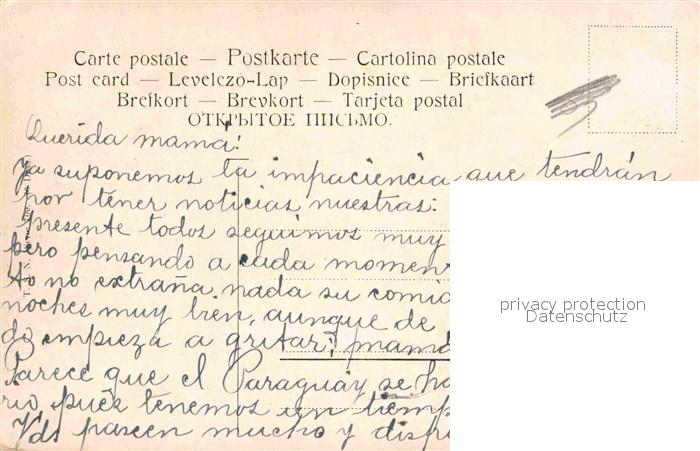 Carte postale — Postkarte — Cartolina postale
Post card — Levelezo-Lap — Dopisnice — Briefkaart
Brefkort — Brevkort — Tarjeta postal
ОТКРЫТОЕ ПИСЬМО.
Querida mamá:
Ya suponemos la impaciencia que tendrán
por tener noticias nuestras:
presente todos seguimos muy
pero pensando a cada momen
to no extraña nada su comid
noches muy bien, aunque de
do empieza a gritar: mamá
Parece que el Paraguay se ha
rio, pués tenemos un tiemp
Vds paseen mucho y disfr
privacy protection
Datenschutz